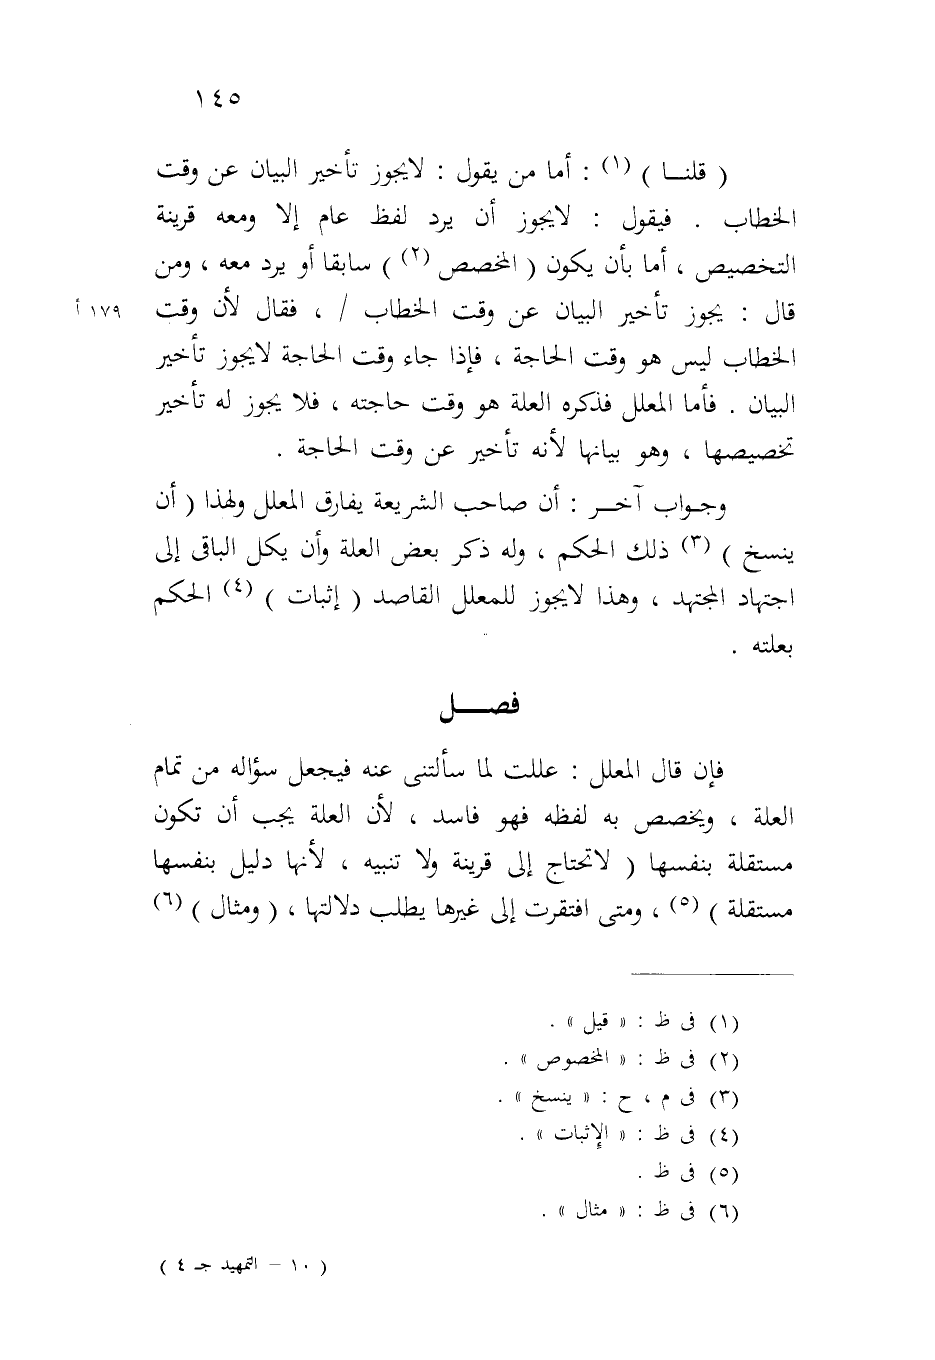 ١٤٥
( قلنــا ) (١) : أما من يقول : لايجوز تأخير البيان عن وقت
الخطاب . فيقول : لايجوز أن يرد لفظ عام إلا ومعه قرينة
التخصيص ، أما بأن يكون ( المخصص (٢) ) سابقا أو يرد معه ، ومن
قال : يجوز تأخير البيان عن وقت الخطاب / ، فقال لأن وقت ١٧٩ أ
الخطاب ليس هو وقت الحاجة ، فإذا جاء وقت الحاجة لايجوز تأخير
البيان . فأما المعلل فذكره العلة هو وقت حاجته ، فلا يجوز له تأخير
تخصيصها ، وهو بيانها لأنه تأخير عن وقت الحاجة .
وجـواب آخــر : أن صاحب الشريعة يفارق المعلل ولهذا ( أن
ينسخ ) (٣) ذلك الحكم ، وله ذكر بعض العلة وأن يكل الباقى إلى
اجتهاد المجتهد ، وهذا لايجوز للمعلل القاصد ( إثبات ) (٤) الحكم
بعلته .
فصـــل
فإن قال المعلل : عللت لما سألتنى عنه فيجعل سؤاله من تمام
العلة ، ويخصص به لفظه فهو فاسد ، لأن العلة يجب أن تكون
مستقلة بنفسها ( لاتحتاج إلى قرينة ولا تنبيه ، لأنها دليل بنفسها
مستقلة ) (٥) ، ومتى افتقرت إلى غيرها يطلب دلالتها ، ( ومثال ) (٦)
(١) فى ظ : « قيل » .
(٢) فى ظ : « المخصوص » .
(٣) فى م ، ح : « ينسخ » .
(٤) فى ظ : « الإثبات » .
(٥) فى ظ .
(٦) فى ظ : « مثال » .
( ١٠ – التمهيد جـ ٤ )